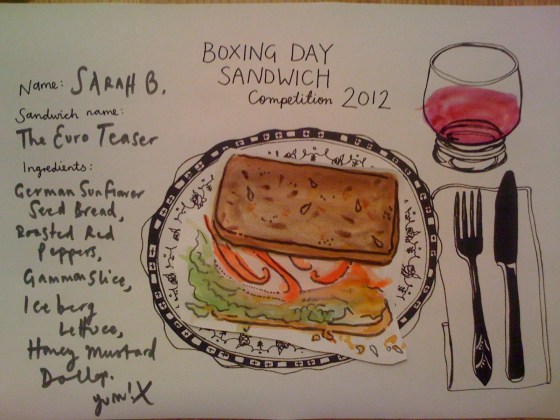 BOXING DAY
SANDWICH
Competition 2012
Name: SARAH B.
Sandwich name:
The Euro Teaser
Ingredients:
German Sunflower
Seed Bread,
Roasted Red
Peppers,
Gammon Slice,
Iceberg
Lettuce,
Honey Mustard
Dollop.
yum! X